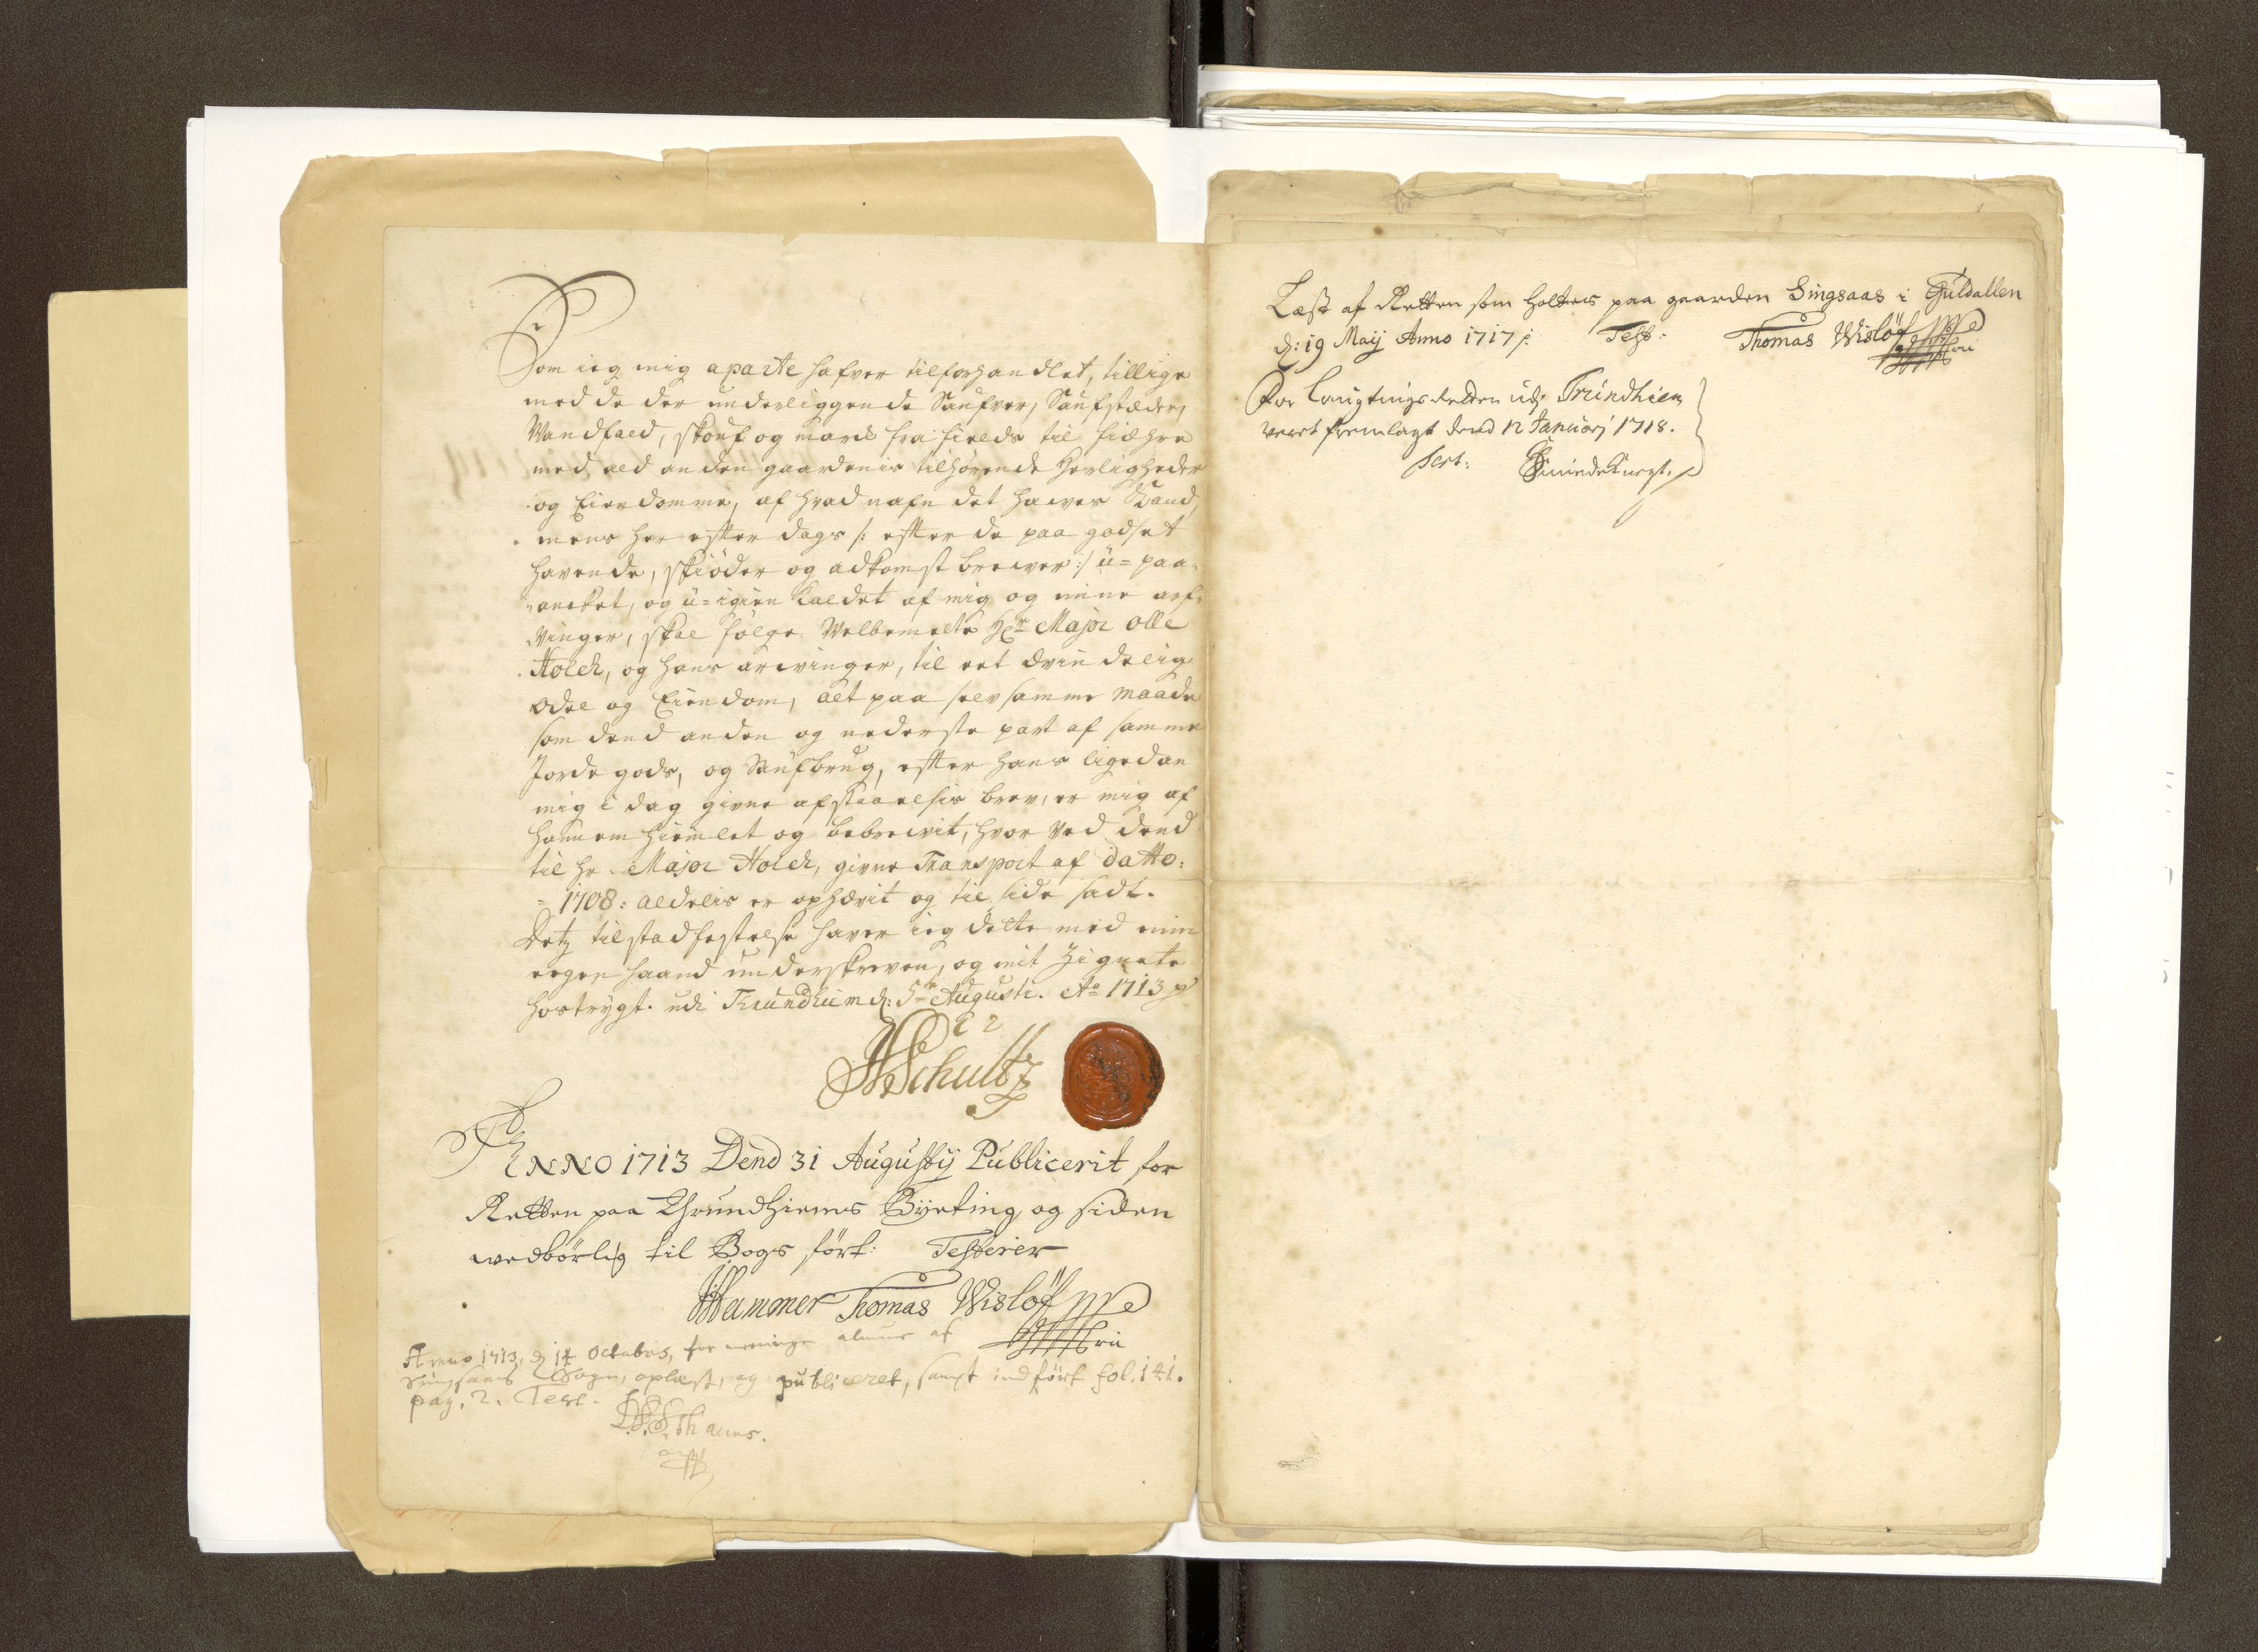 Som ieg mig aparte hafver tilforhandlet, tillige
med de der underliggende Saufver, Saufstæder,
Wandfald, skouf og marck fra fields til fiehre
med ald anden gaardenis tilhørende Herligheder
og Eiendomme, af hvad nafn det haver kand,
mens her efter dags /: efter de paa godset
havende, skiöder og adkomst brewer :/ ü=paa-
ancket, og ü=igien kaldet af mig og mine arf-
vinger, skal følge Welbemelte Hr Major Olle
Holch, og hans arwinger, til ret
Odel og Eiendom, alt paa selvsamme maade
som dend anden og nederste part af samme
Jorde gods, og Saufbrug, efter hans ligedan
mig i dag givne afstaaelsis brev, er mig af
hannem hiemlet og bebrewit, hvor ved dend
til Hr Major Holch, givne Transport af datto:
= 1708: aldelis er ophævit og til side sadt.
Detz tilstadfestelse haver ieg dette med min
eegen haand underskreven, og mit Zignete
hostrygt. udi Trundhiem d: 5te Augusti. Ao 1713
Schultz
ANNO 1713 Dend 31 Augustij Publicerit for
Retten paa Thrundhiems Bÿeting og siden
wedbörlig til Bogs fört: Testerer
Hammer Thomas Wislöff
Anno 1713, d 14 Octobris, for meninge almue af
Singsaas Sogn, oplæst, og publiceret, sampt indfört fol. 141.
pag. 2. Test.
Læst af Retten som holtes paa gaarden Singsaas i Guldallen
d: 19 Maij Anno 1717 Test: Thomas Wislöf
For Laugtings Retten udj Trundhiem
veret fremlagt dend 12 Januarj 1718.
test: